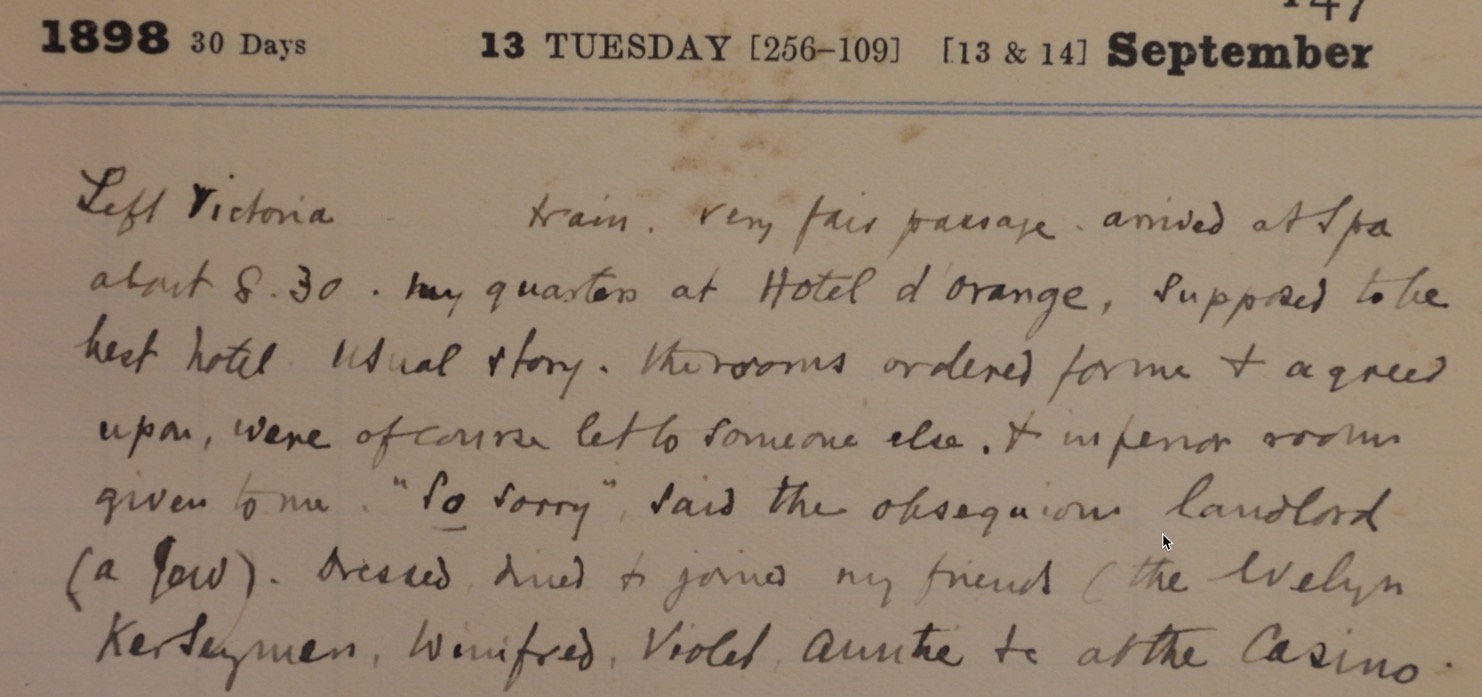 1898 30 Days 13 TUESDAY [256–109] [13 & 14] September
Left Victoria train. very fair passage. arrived at Spa
about 8.30. my quarters at Hotel d'Orange, supposed to be
best hotel. Usual story. The rooms ordered for me & agreed
upon, were of course let to someone else. & inferior rooms
given to me. "So sorry", said the obsequious landlord
(a Jew). Dressed, dined & joined my friends (the Evelyn
Ker Seymers, Winifred, Violet, Auntie &c at the Casino.